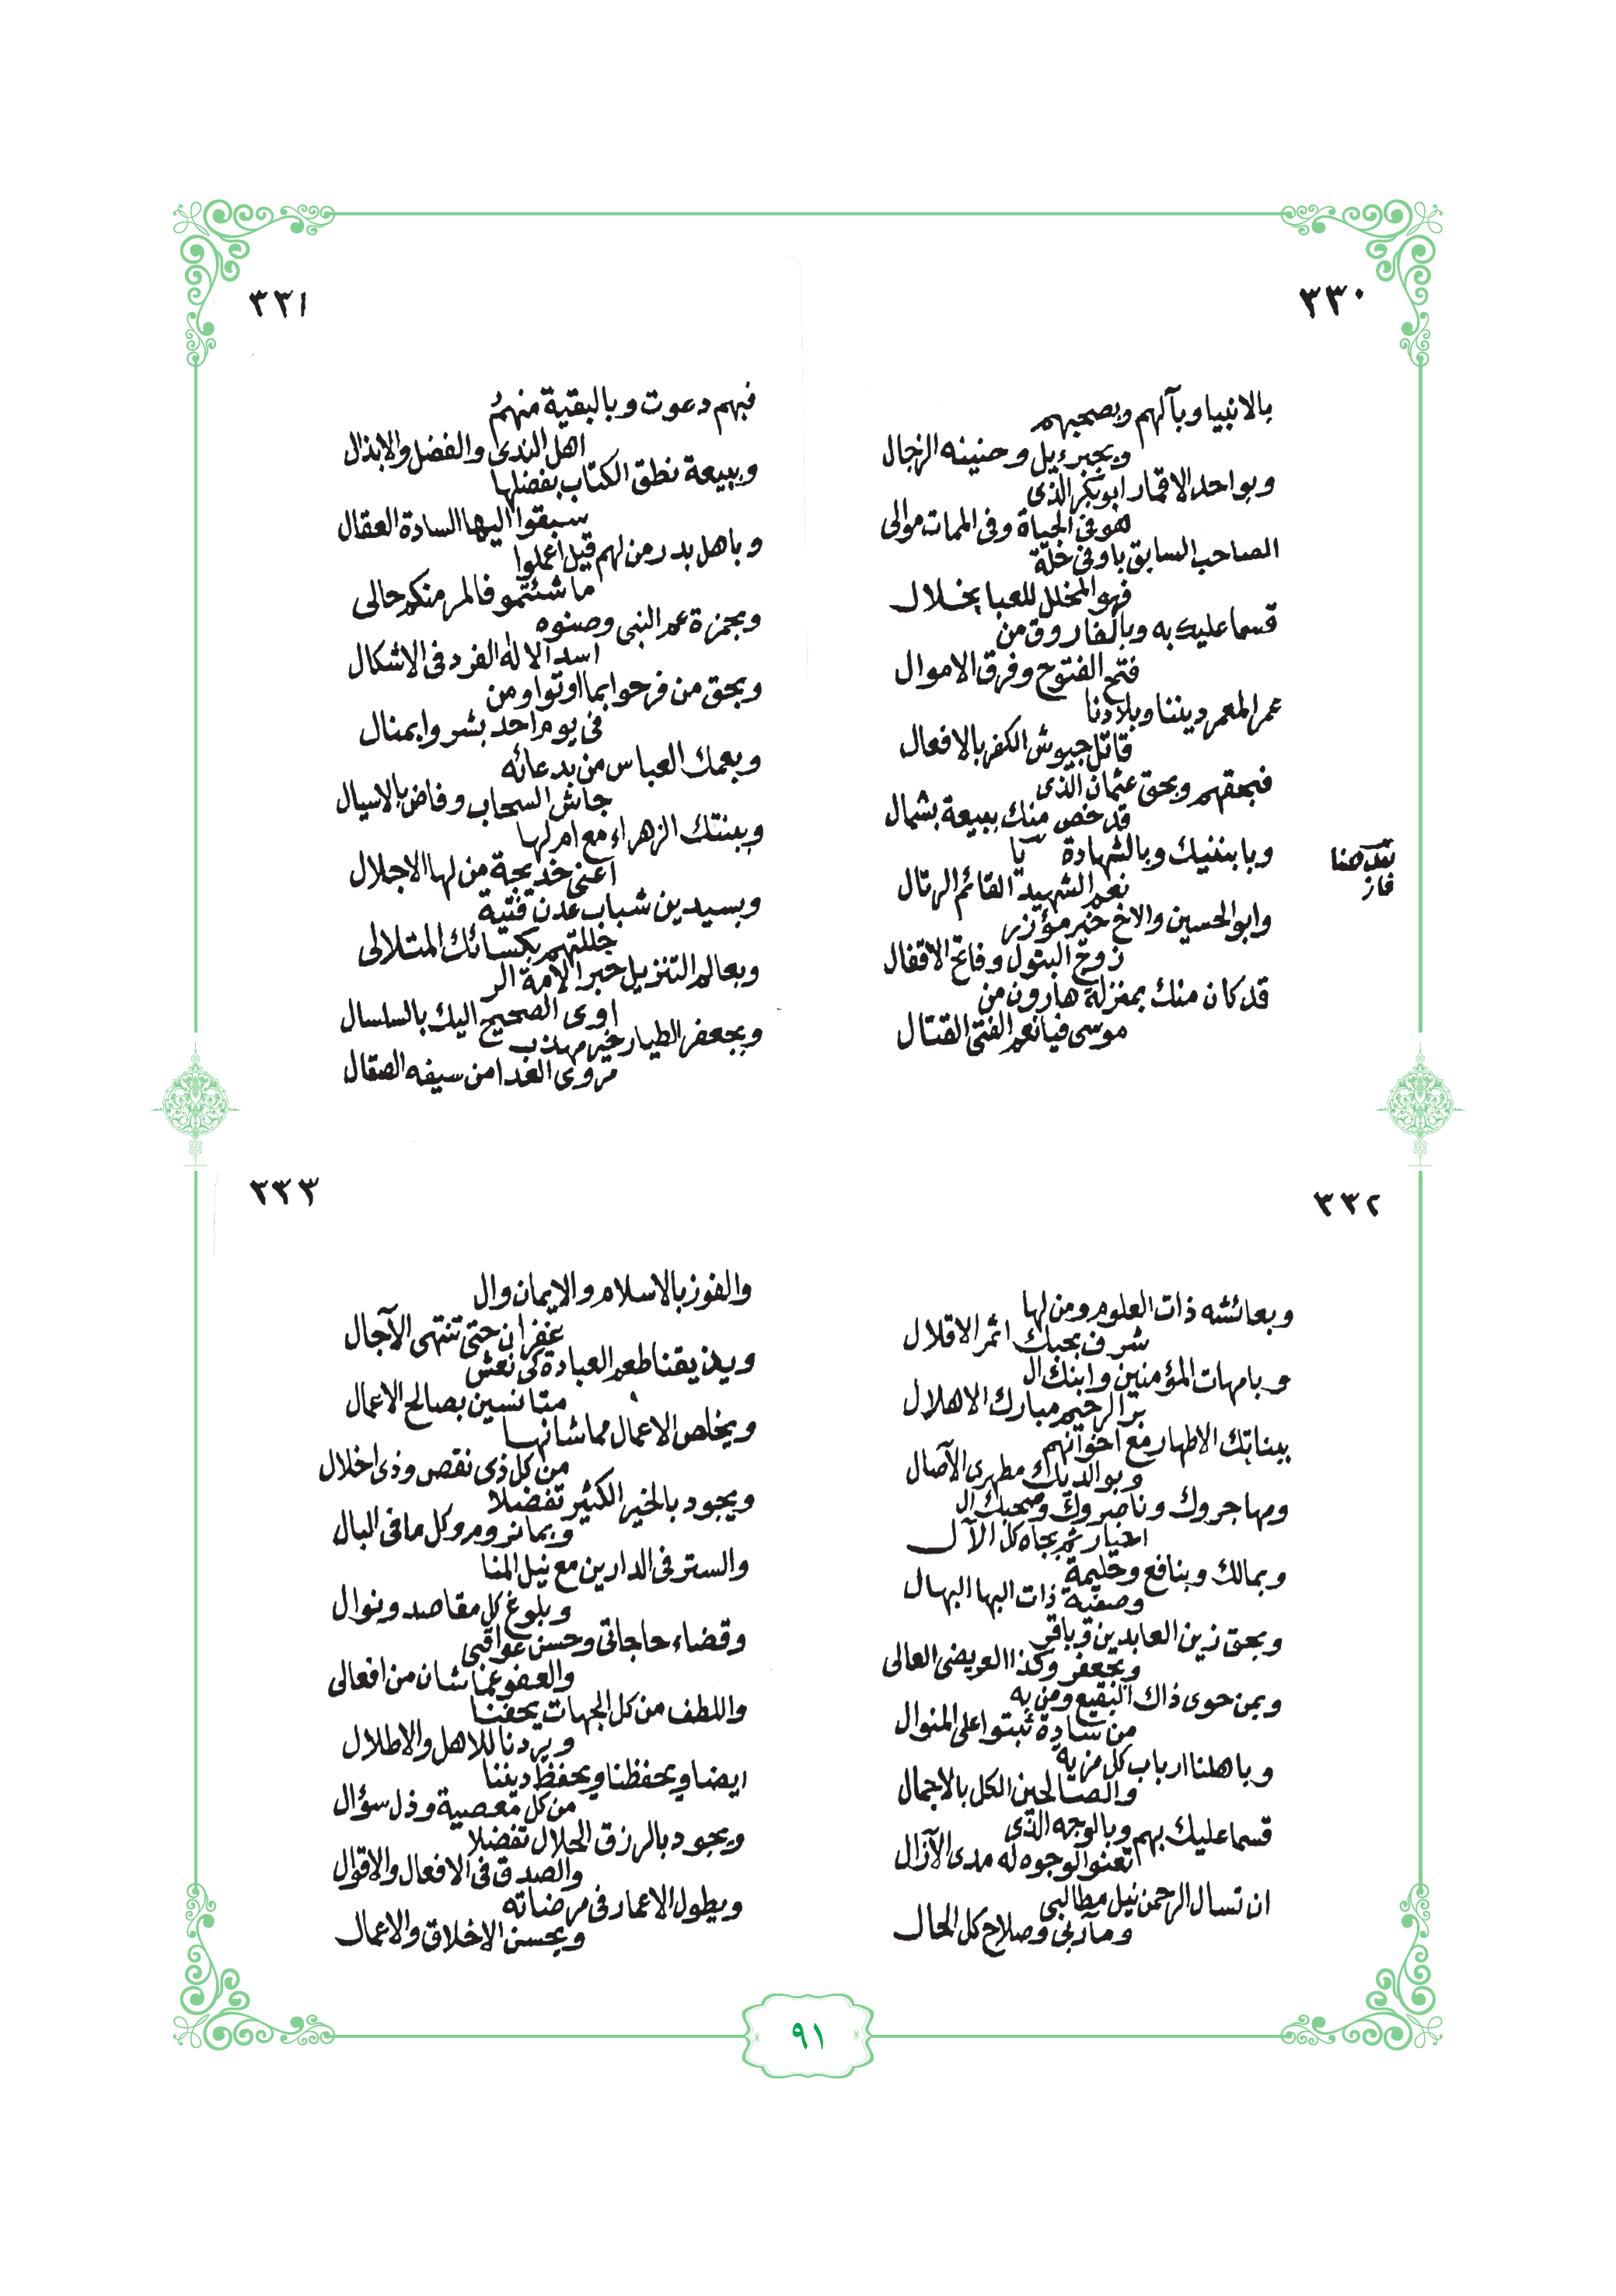 ٣٣٠
بالانبيا وبآلهم وبصحبهم
وبجبرءيل وحنينه الزجال
وبواحد الاقمار ابوبكر الذى
هو فى الحياة وفى الممات موالى
الصاحب السابق باوفى خلّة
فهو المخلل للعبا بخلال
قسما عليك به وبالفاروق من
فتح الفتوح وفرق الاموال
عمر المعمر ديننا وبلادنا
قاتل جيوش الكفر بالافعال
فبحقهم وبحق عثمان الذى
قد خص منك ببيعة بشمال
وبابنتيك وبالشهادة يا
نعم الشهيد القائم الرتال
وابو الحسين والاخ خير مؤزر
زوج البتول وفاتح الاقفال
قد كان منك بمنزلة هارون من
موسى فيا نعم الفتى القتال
هنا
فاز
٣٣١
فبهم دعوت وبالبقية منهمُ
اهل الندى والفضل والابذال
وببيعة نطق الكتاب بفضلها
سبقوا اليها السادة العقال
وباهل بدر من لهم قيل اعملوا
ما شئتمو فالمر منكم حالى
وبحمزة عم النبى وصنوه
اسد الاله الفرد فى الاشكال
وبحق من فرحوا بما اوتوا ومن
فى يوم احد بشروا بمنال
وبعمك العباس من بدعائه
جاش السحاب وفاض بالاسيال
وببنتك الزهراء مع ام لها
اعنى خديجة من لها الاجلال
وبسيدين شباب عدن فتية
خللتهم بكسائك المتلالى
وبعالم التنزيل حبر الامة الر
اوى الصحيح اليك بالسلسال
وبجعفر الطيار خير مهذب
مروى العدا من سيفه الصقال
٣٣٢
وبعائشه ذات العلوم ومن لها
شرف بحبك اثر الاقلال
وبامهات المؤمنين وابنك ال
بر الرحيم مبارك الاهلال
ببناتك الاطهار مع اخوانهم
وبوالديك مطهرى الآصال
ومهاجروك وناصروك وصحبك ال
اخيار ثم بجاه كل الآل
وبمالك وبنافع وحليمة
وصفية ذات البها البهال
وبحق زين العابدين وباقر
وبجعفر وكذا العريضى العالى
وبمن حوى ذاك البقيع ومن به
من سادة ثبتوا على المنوال
وباهلنا ارباب كل مزية
والصالحين الكل بالاجمال
قسما عليك بهم وبالوجه الذى
تعنو الوجوه له مدى الآزال
ان تسال الرحمن نيل مطالبى
ومآربى وصلاح كل الحال
٣٣٣
والفوز بالاسلام والايمان وال
غفران حتى تنتهى الآجال
ويذيقنا طعم العبادة كى نعش
متانسين بصالح الاعمال
ويخلص الاعمال مما شانها
من كل ذى نقص وذى اخلال
ويجود بالخير الكثير تفضلا
وبما نروم وكل ما فى البال
والستر فى الدارين مع نيل المنا
وبلوغ كل مقاصد ونوال
وقضاء حاجاتى وحسن عواقبى
والعفو عما شان من افعالى
واللطف من كل الجهات يحفنا
ويردنا للاهل والاطلال
ايضا ويحفظنا ويحفظ ديننا
من كل معصية وذل سؤال
ويجود بالرزق الحلال تفضلا
والصدق فى الافعال والاقوال
ويطول الاعمار فى مرضاته
ويحسن الاخلاق والاعمال
٩١